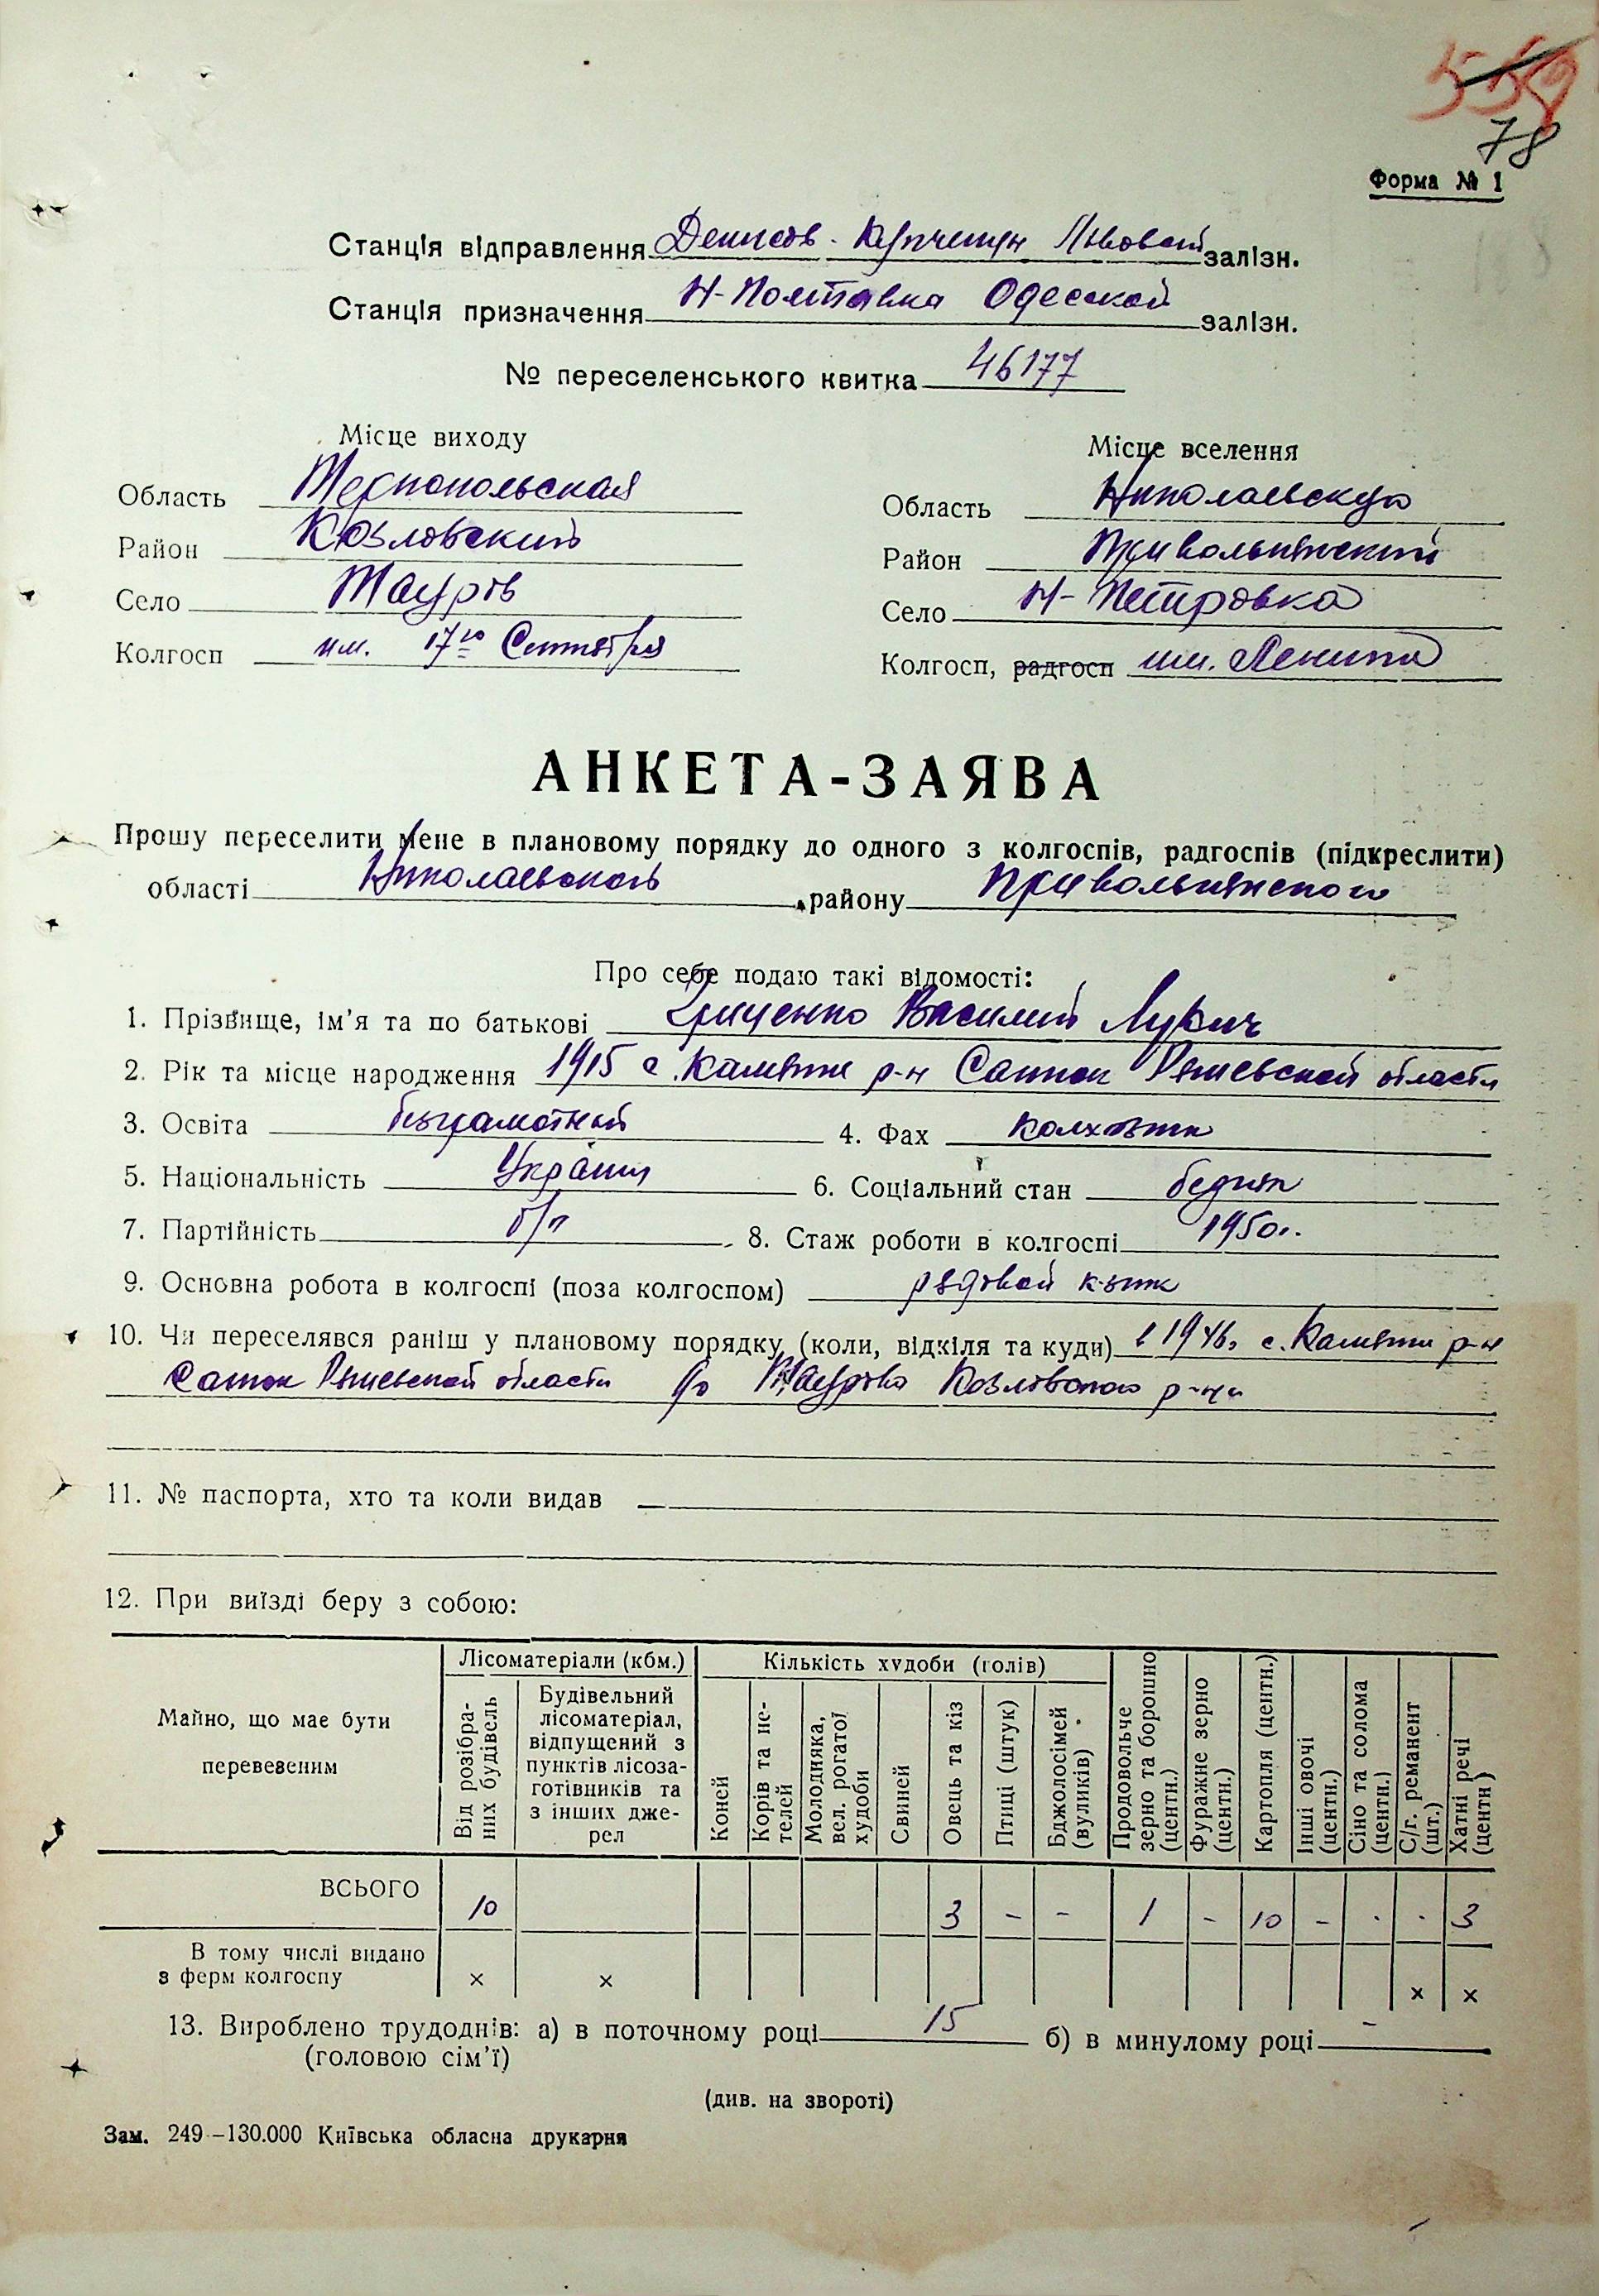 559
78
Форма № 1
Станція відправлення Денисов-Купчинци Львовской залізн.
Станція призначення Н-Полтавка Одесской залізн.
№ переселенського квитка 46177
Місце виходу
Місце вселення
Область Тернопольская
Область Николаевскую
Район Козловский
Район Привольнянский
Село Тауров
Село Н-Петровка
Колгосп им. 17го Сентября
Колгосп, радгосп им. Ленина
АНКЕТА-ЗАЯВА
Прошу переселити мене в плановому порядку до одного з колгоспів, радгоспів (підкреслити)
області Николаевского району Привольнянского
Про себе подаю такі відомості:
1. Прізвище, ім'я та по батькові Гриценко Василий Лукич
2. Рік та місце народження 1915 с. р-н Санок Ряшевской области
3. Освіта безграмотный 4. Фах колхозник
5. Національність Украин 6. Соціальний стан бедняк
7. Партійність б/п 8. Стаж роботи в колгоспі 1950г.
9. Основна робота в колгоспі (поза колгоспом) рядовой к-зник
10. Чи переселявся раніш у плановому порядку (коли, відкіля та куди) в 1946г с. р-н
Санок Ряшевской области до Таурова Козловского р-на
11. № паспорта, хто та коли видав —
12. При виїзді беру з собою:
Майно, що має бути перевезеним
Лісоматеріали (кбм.)
Кількість худоби (голів)
Від розібраних будівель
Будівельний лісоматеріал, відпущений з пунктів лісозаготівників та з інших джерел
Коней
Корів та нетелей
Молодняка, вел. рогатої худоби
Свиней
Овець та кіз
Птиці (штук)
Бджолосімей (вуликів)
Продовольче зерно та борошно (центн.)
Фуражне зерно (центн.)
Картопля (центн.)
Інші овочі (центн.)
Сіно та солома (центн.)
С/г. реманент (шт.)
Хатні речі (центн)
ВСЬОГО 10 3 - - 1 - 10 - - - 3
В тому числі видано з ферм колгоспу × × × ×
13. Вироблено трудоднів: а) в поточному році 15 б) в минулому році -
(головою сім'ї)
(див. на звороті)
Зам. 249-130.000 Київська обласна друкарня